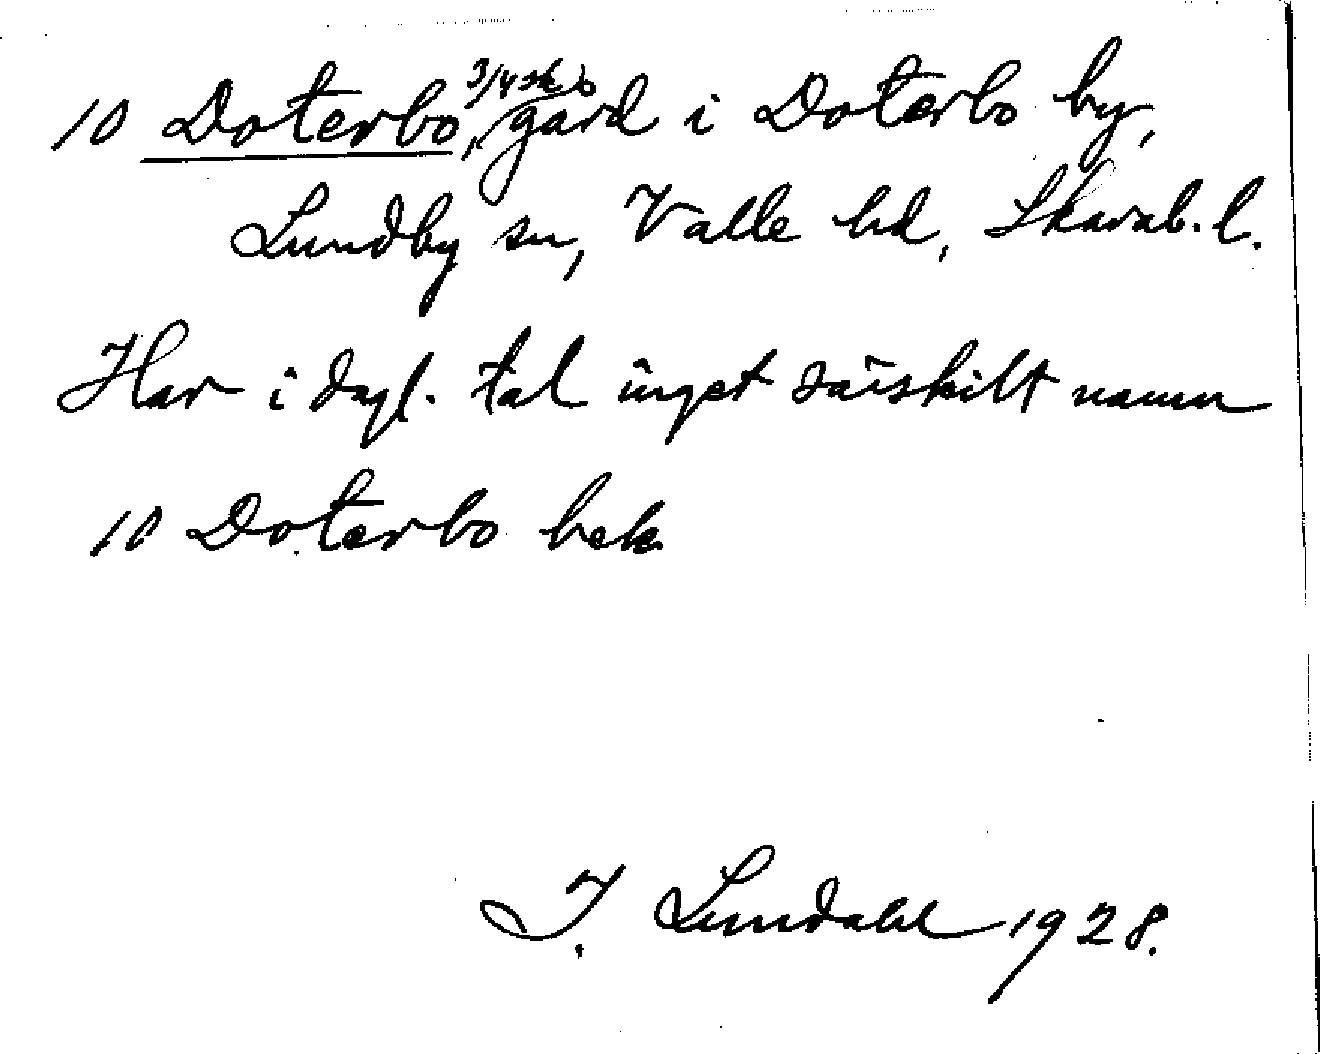 10 Doterbo, 3/4 gård i Doterbo by,
Lundby sn, Valle hd, Skarab. l.
Har i dagl. tal inget särskilt namn
10 Doterbo bek.
I. Lundahl 1928.